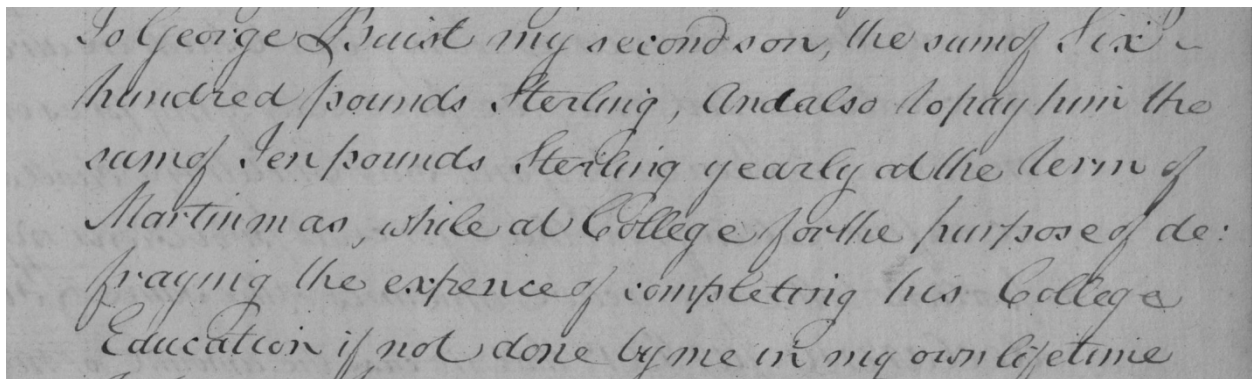 To George Buist my second son, the sum of Six
hundred pounds Sterling, And also to pay him the
sum of Ten pounds Sterling yearly at the term of
Martinmas, while at College for the purpose of de:
fraying the expence of completing his College
Education if not done by me in my own lifetime